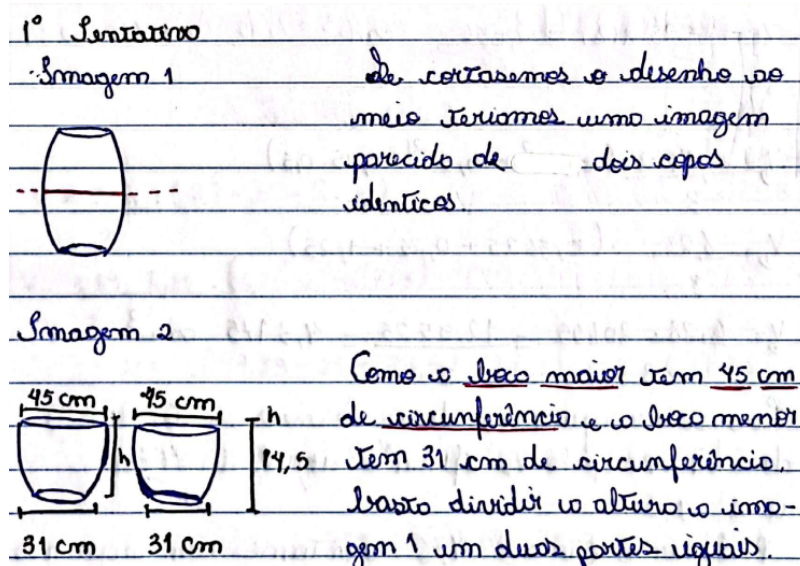 1º Tentativa
Imagem 1
Se cortasemos o desenho ao
meio teriamos uma imagem
parecida de dois copos
identicos.
Imagem 2
Como a boca maior tem 45 cm
de circunferência e a boca menor
tem 31 cm de circunferência,
basta dividir a altura a ima-
gem 1 um duas partes iguais.
45 cm 45 cm
h h 14,5
31 cm 31 cm